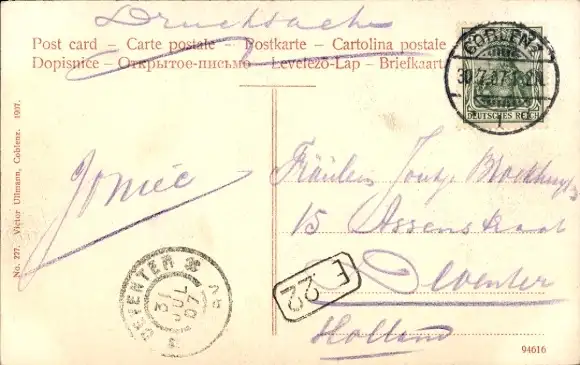 Drucksache
Post card – Carte postale – Postkarte – Cartolina postale
Dopisnice – Открытое-письмо – Levelező-Lap – Briefkaart
COBLENZ
30.7.07
1
DEUTSCHES REICH
No. 277. Victor Ullmann, Coblenz. 1907.
Fräulein
15 Assenstraat
Deventer
Holland
DEVENTER
31 JUL 07
F 22
94616